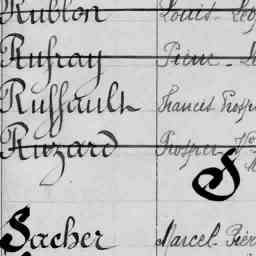 Rublon Louis-
Rufray Pierre-
Ruffault Francis Prosper
Ruzard Prosper
S
Sacher Marcel-Pier